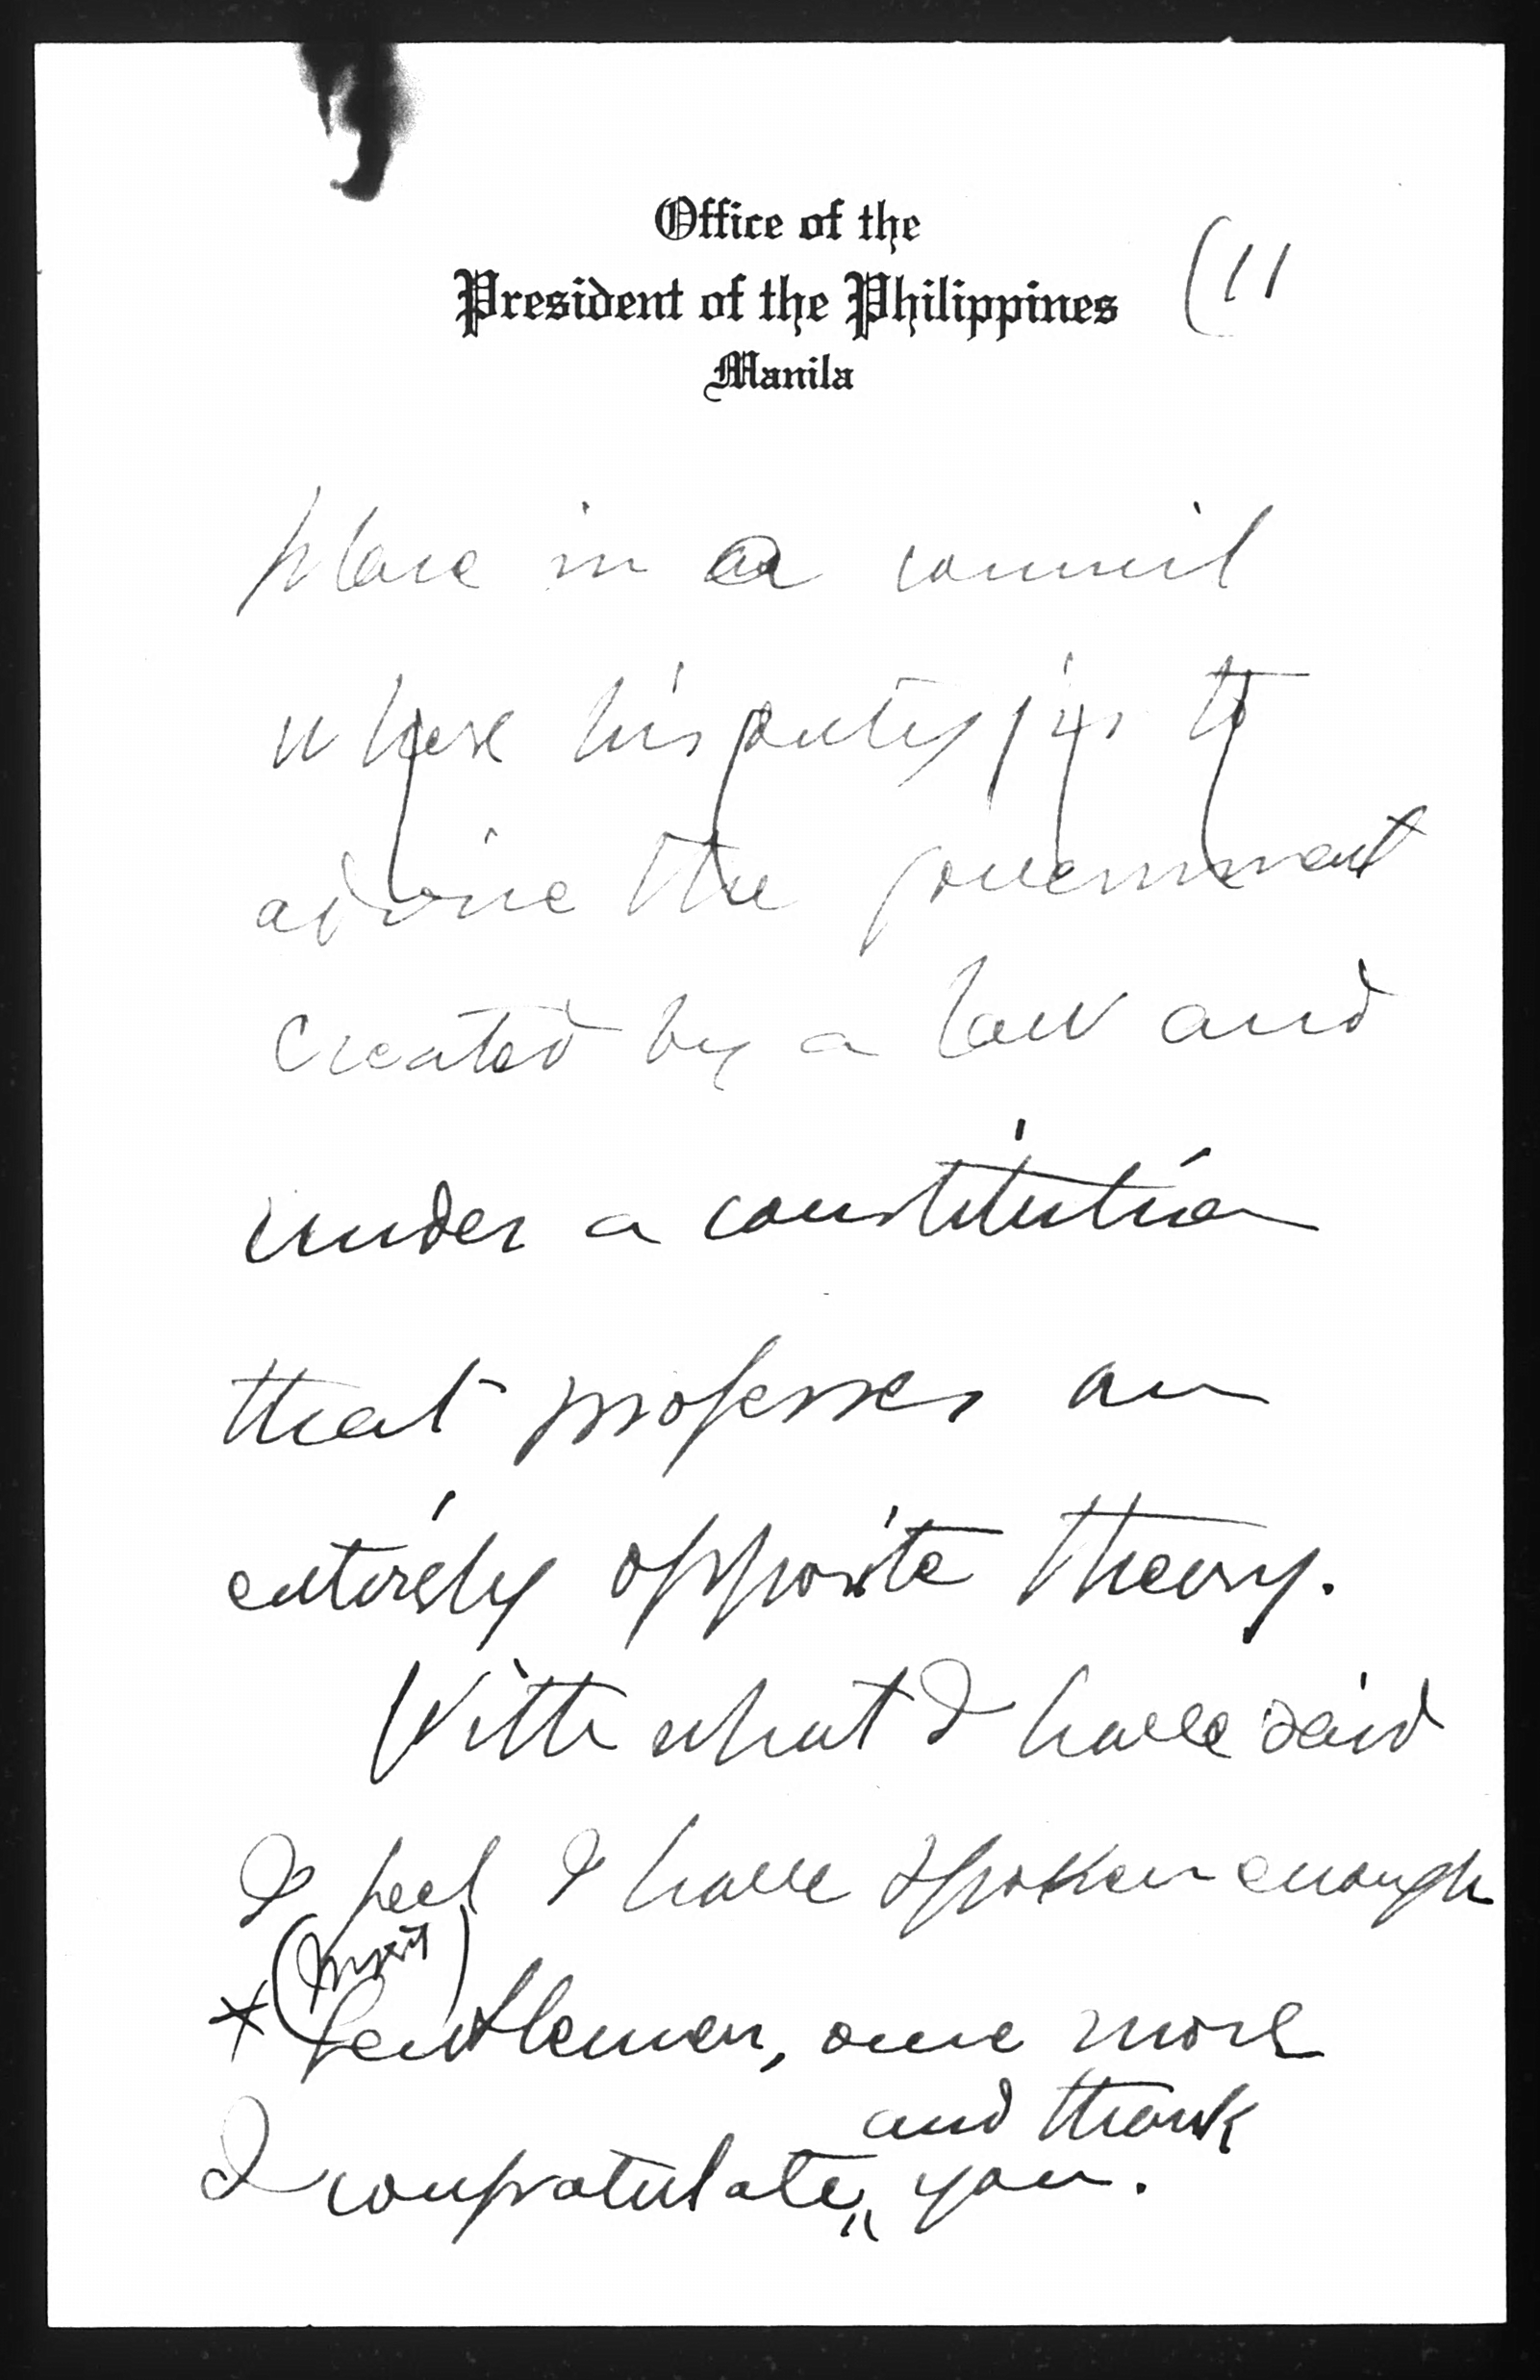 Office of the
President of the Philippines
Manila
(11
place in a council
where his duty is to
advise the government
created by a law and
under a constitution
that professes an
entirely opposite theory.
With what I have said
I feel I have spoken enough
* Gentlemen, once more
and thank
I congratulate you.